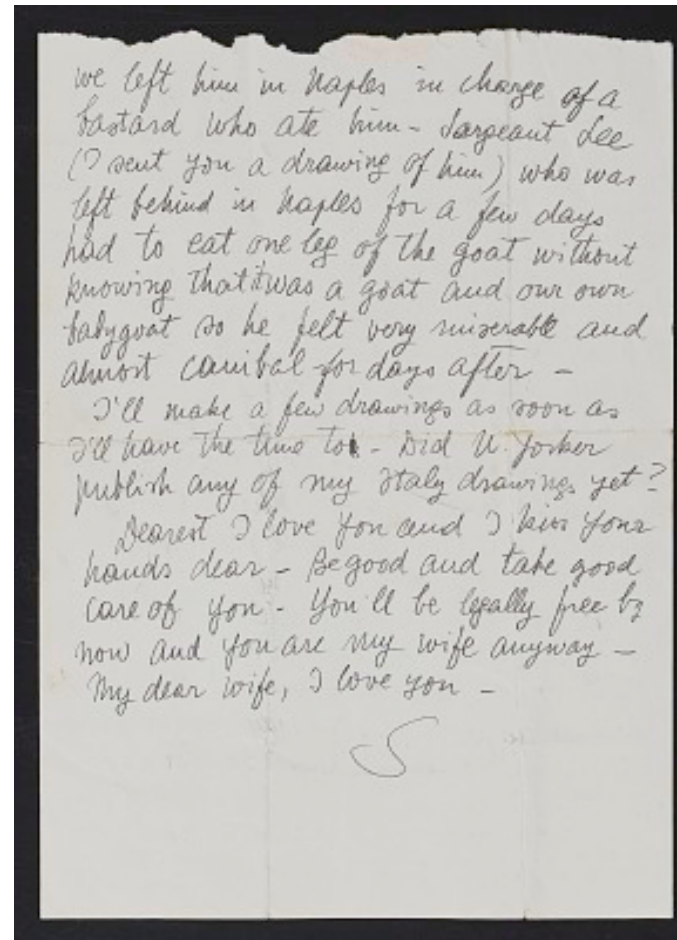 we left him in Naples in charge of a
bastard who ate him - Sargeant Lee
(I sent you a drawing of him) who was
left behind in Naples for a few days
had to eat one leg of the goat without
knowing that it was a goat and our own
babygoat so he felt very miserable and
almost canibal for days after -
I'll make a few drawings as soon as
I'll have the time to - Did N. Yorker
publish any of my Italy drawings yet?
Dearest I love you and I kiss your
hands dear - Be good and take good
care of you - You'll be legally free by
now and you are my wife anyway -
My dear wife, I love you -
S